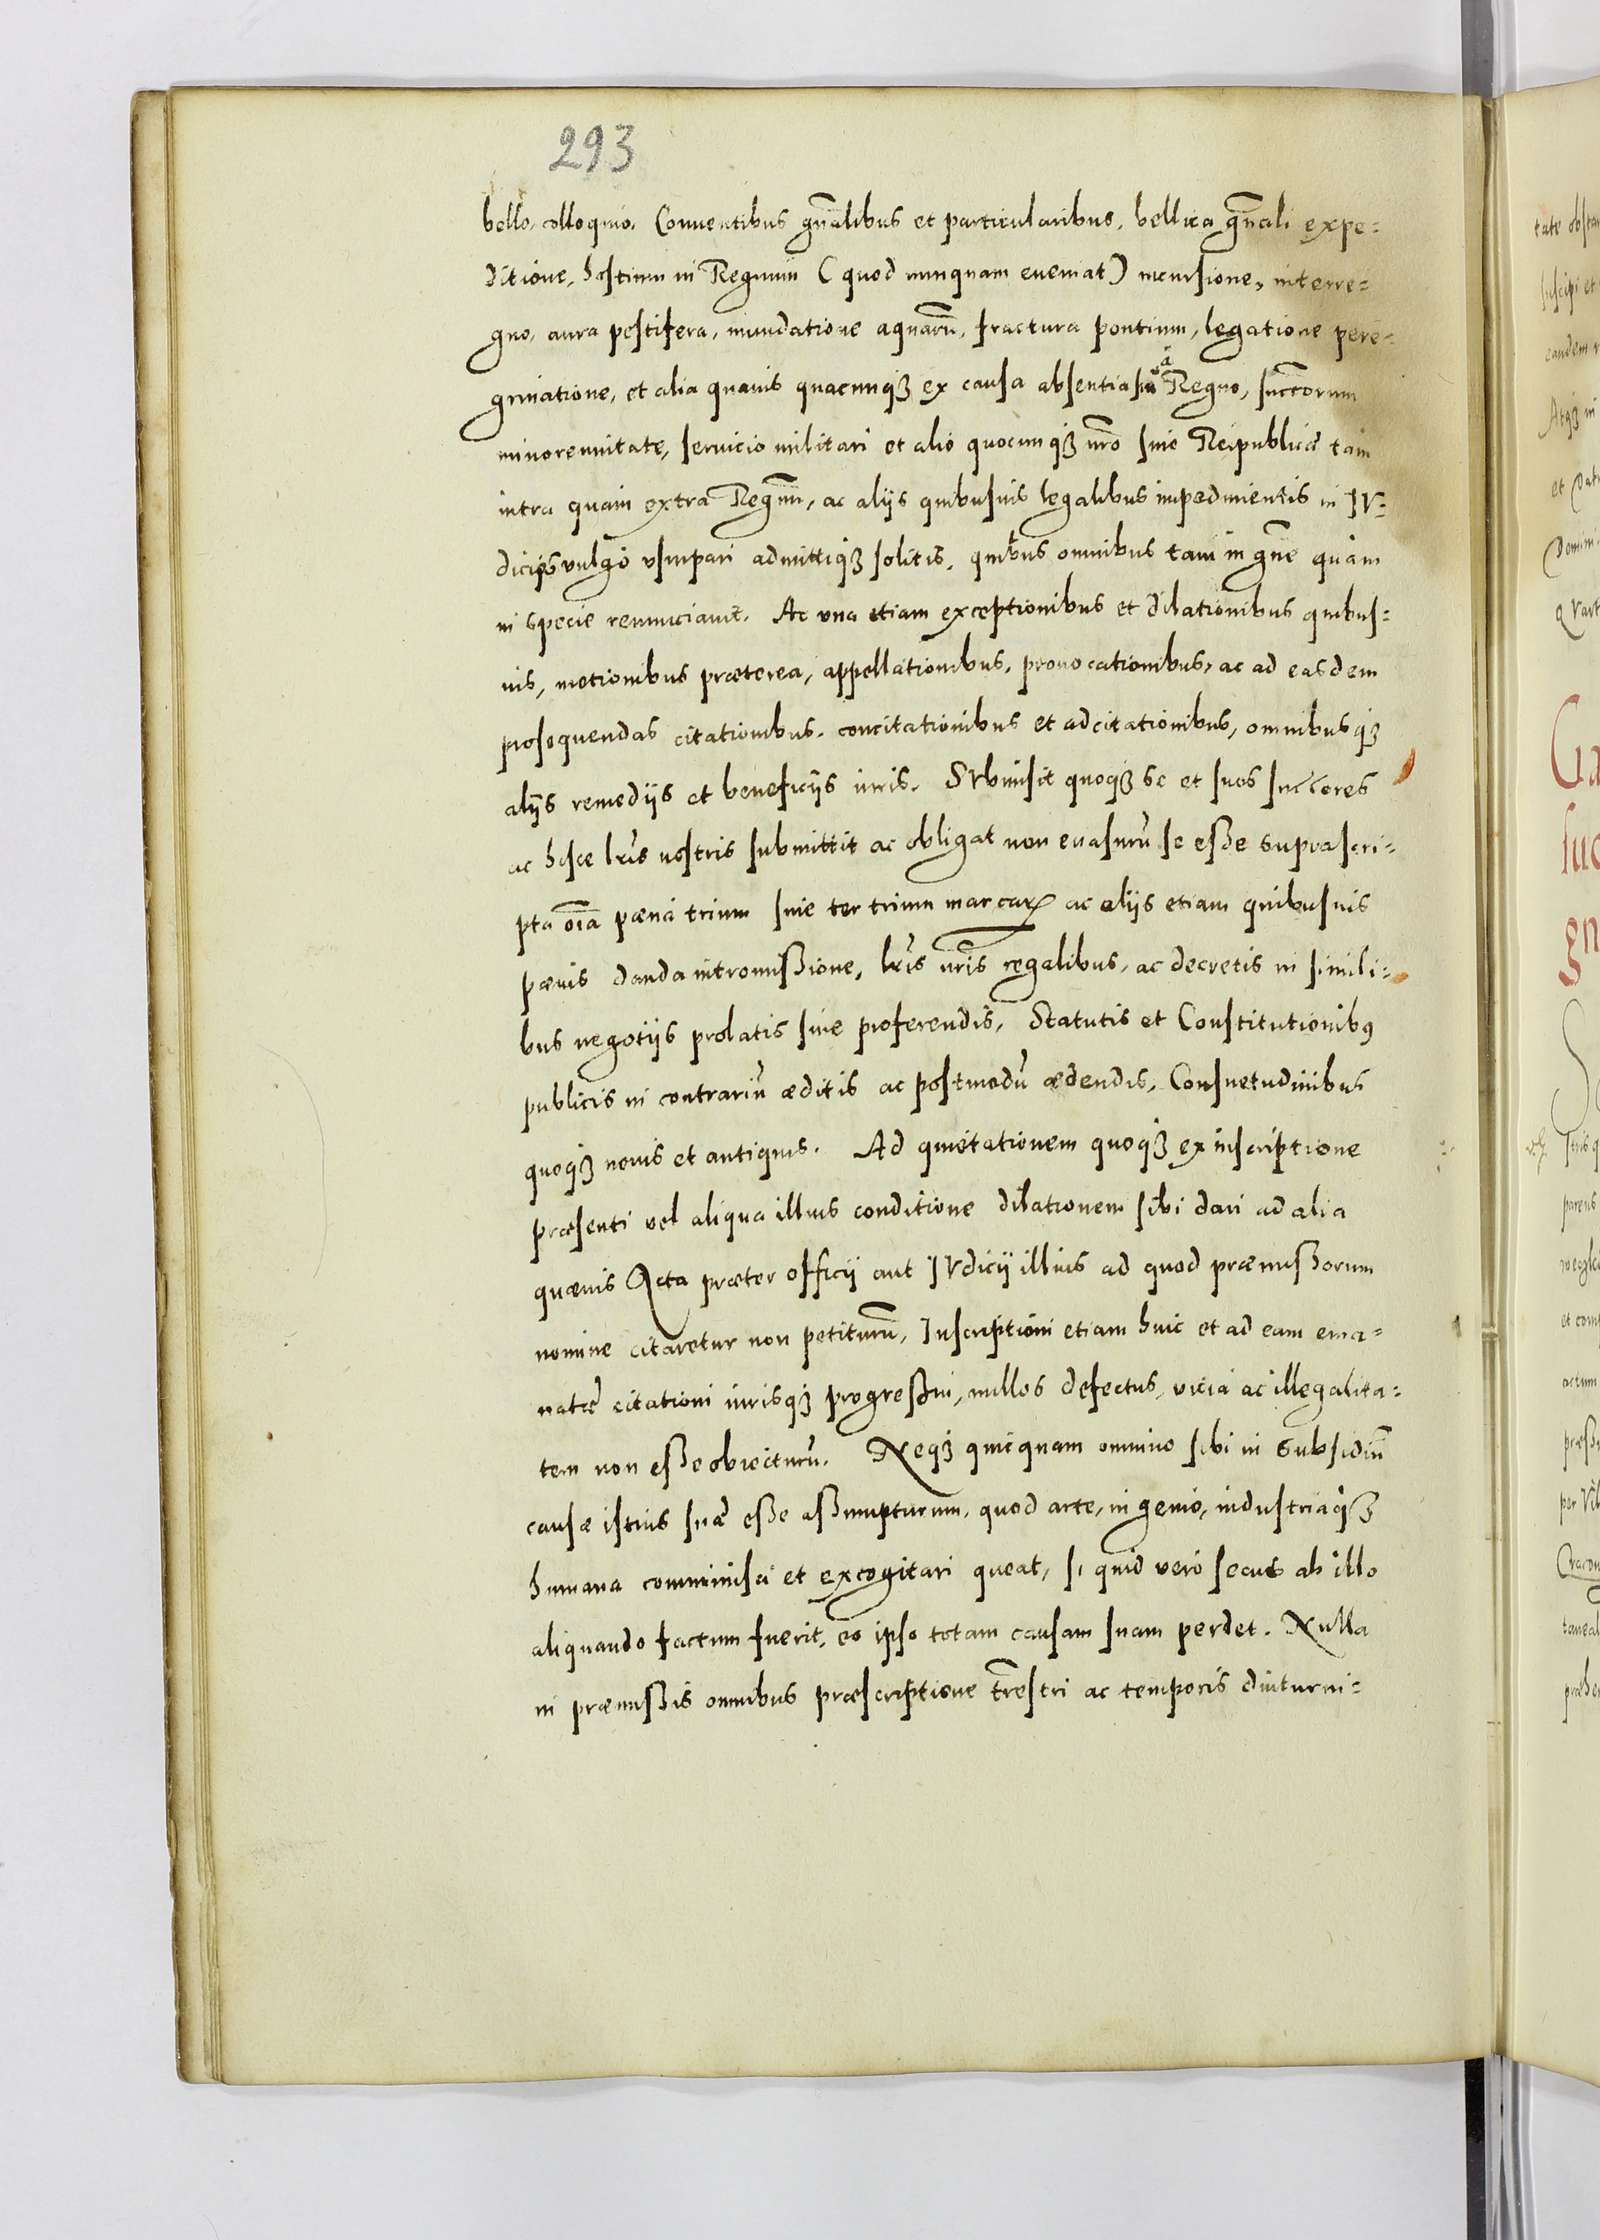 293
bello, colloquio, Conuentibus gn̄alibus et particularibus, bellica gn̄ali expe=
ditione, hostium in Regnum (quod nunquam eueniat) incursione, interre=
gno, aura pestifera, inundatione aquarū, fractura pontium, legatione pere=
grinatione, et alia quauis quacunqꝫ ex causa absentia sua à Regno, succorum
minorennitate, seruicio militari et alio quocunqꝫ nrō siue Reipublicæ tam
intra quam extra Regnū, ac alijs quibusuis legalibus impedimentis in IV=
dicijs vulgò vsurpari admittiqꝫ solitis, quibus omnibus tam in gn̄e quàm
in specie renunciauit. Ac vna etiam exceptionibus et dilationibus quibus=
uis, motionibus præterea, appellationibus, prouocationibus, ac ad easdem
prosequendas citationibus, concitationibus et adcitationibus, omnibusqꝫ
alijs remedijs et beneficijs iuris. SVbmisit quoqꝫ se et suos succores
ac hisce lrīs nostris submittit ac obligat non euasurū se eße suprascri=
pta oīa pæna trium siue ter trium marcarꝝ ac alijs etiam quibusuis
pænis danda intromißione, lrīs nrīs regalibus, ac decretis in simili=
bus negotijs prolatis siue proferendis, Statutis et Constitutionibꝰ
publicis in contrariū æditis ac postmodū ædendis, Consuetudinibus
quoqꝫ nouis et antiquis. Ad quietationem quoqꝫ ex inscriptione
præsenti vel aliqua illius conditione dilationem sibi dari ad alia
quæuis Acta præter officij aut IVdicij illius ad quod præmißorum
nomine citaretur non petiturū, Inscriptioni etiam huic et ad eam ema=
natæ citationi iurisqꝫ progreßui, nullos defectus, vicia ac illegalita=
tem non eße obiecturū. Neqꝫ quicquam omnino sibi in subsidiū
causæ istius suæ eße aßumpturum, quod arte, ingenio, industriaqꝫ
humana comminisci et excogitari queat, si quid verò secus ab illo
aliquando factum fuerit, eo ipso totam causam suam perdet. Nulla
in præmißis omnibus præscriptione tr̄estri ac temporis diuturni=